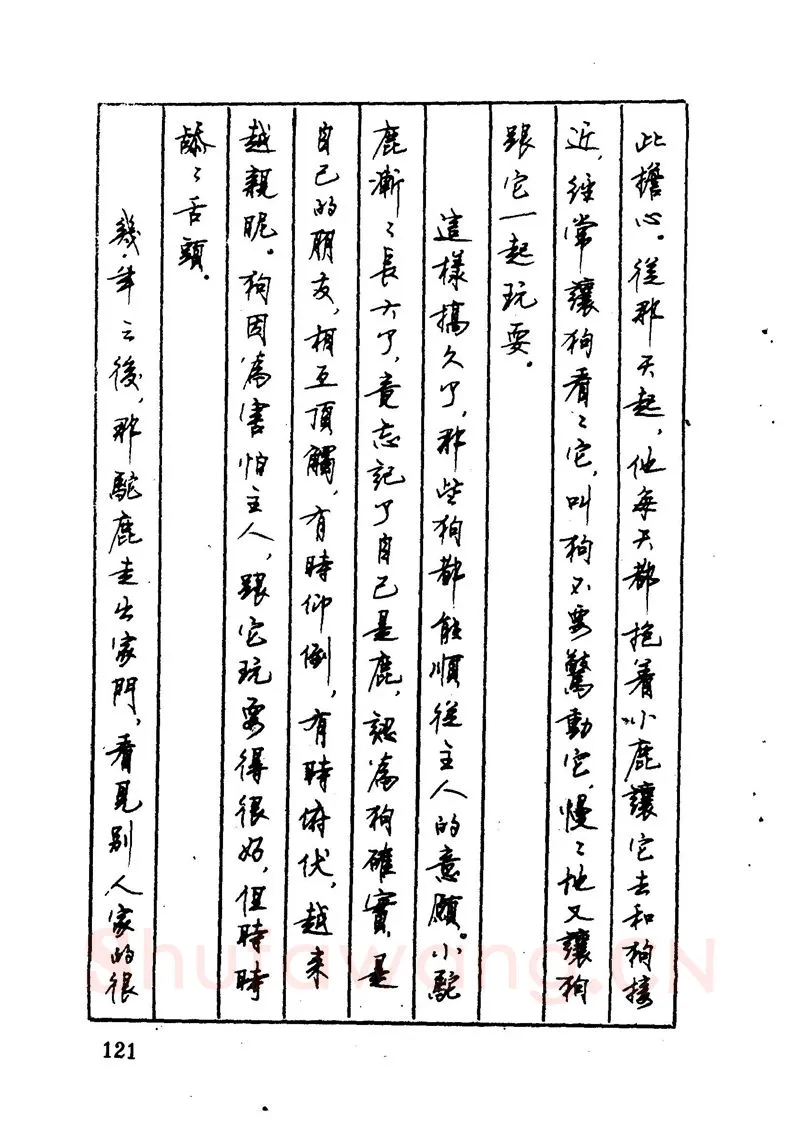 此擔心。從那天起，他每天都抱着小鹿讓它去和狗接
近，經常讓狗看〻它，叫狗不要驚動它，慢〻地又讓狗
跟它一起玩耍。
這樣搞久了，那些狗都能順從主人的意願。小駝
鹿漸〻長大了，竟忘記了自己是鹿，認爲狗確實是
自己的朋友，相互頂觸，有時仰倒，有時俯伏，越來
越親昵。狗因爲害怕主人，跟它玩耍得很好，但時時
舔〻舌頭。
幾年之後，那駝鹿走出家門，看見别人家的很
121
Shufawang.CN